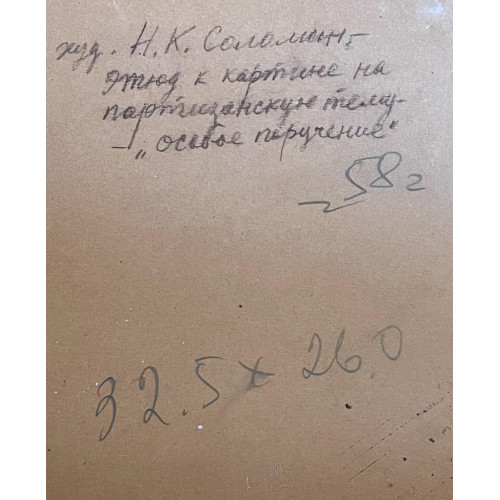 худ. Н. К. Соломин -
Этюд к картине на
партизанскую тему -
- „особое поручение"
- 58 г
32.5 x 26.0